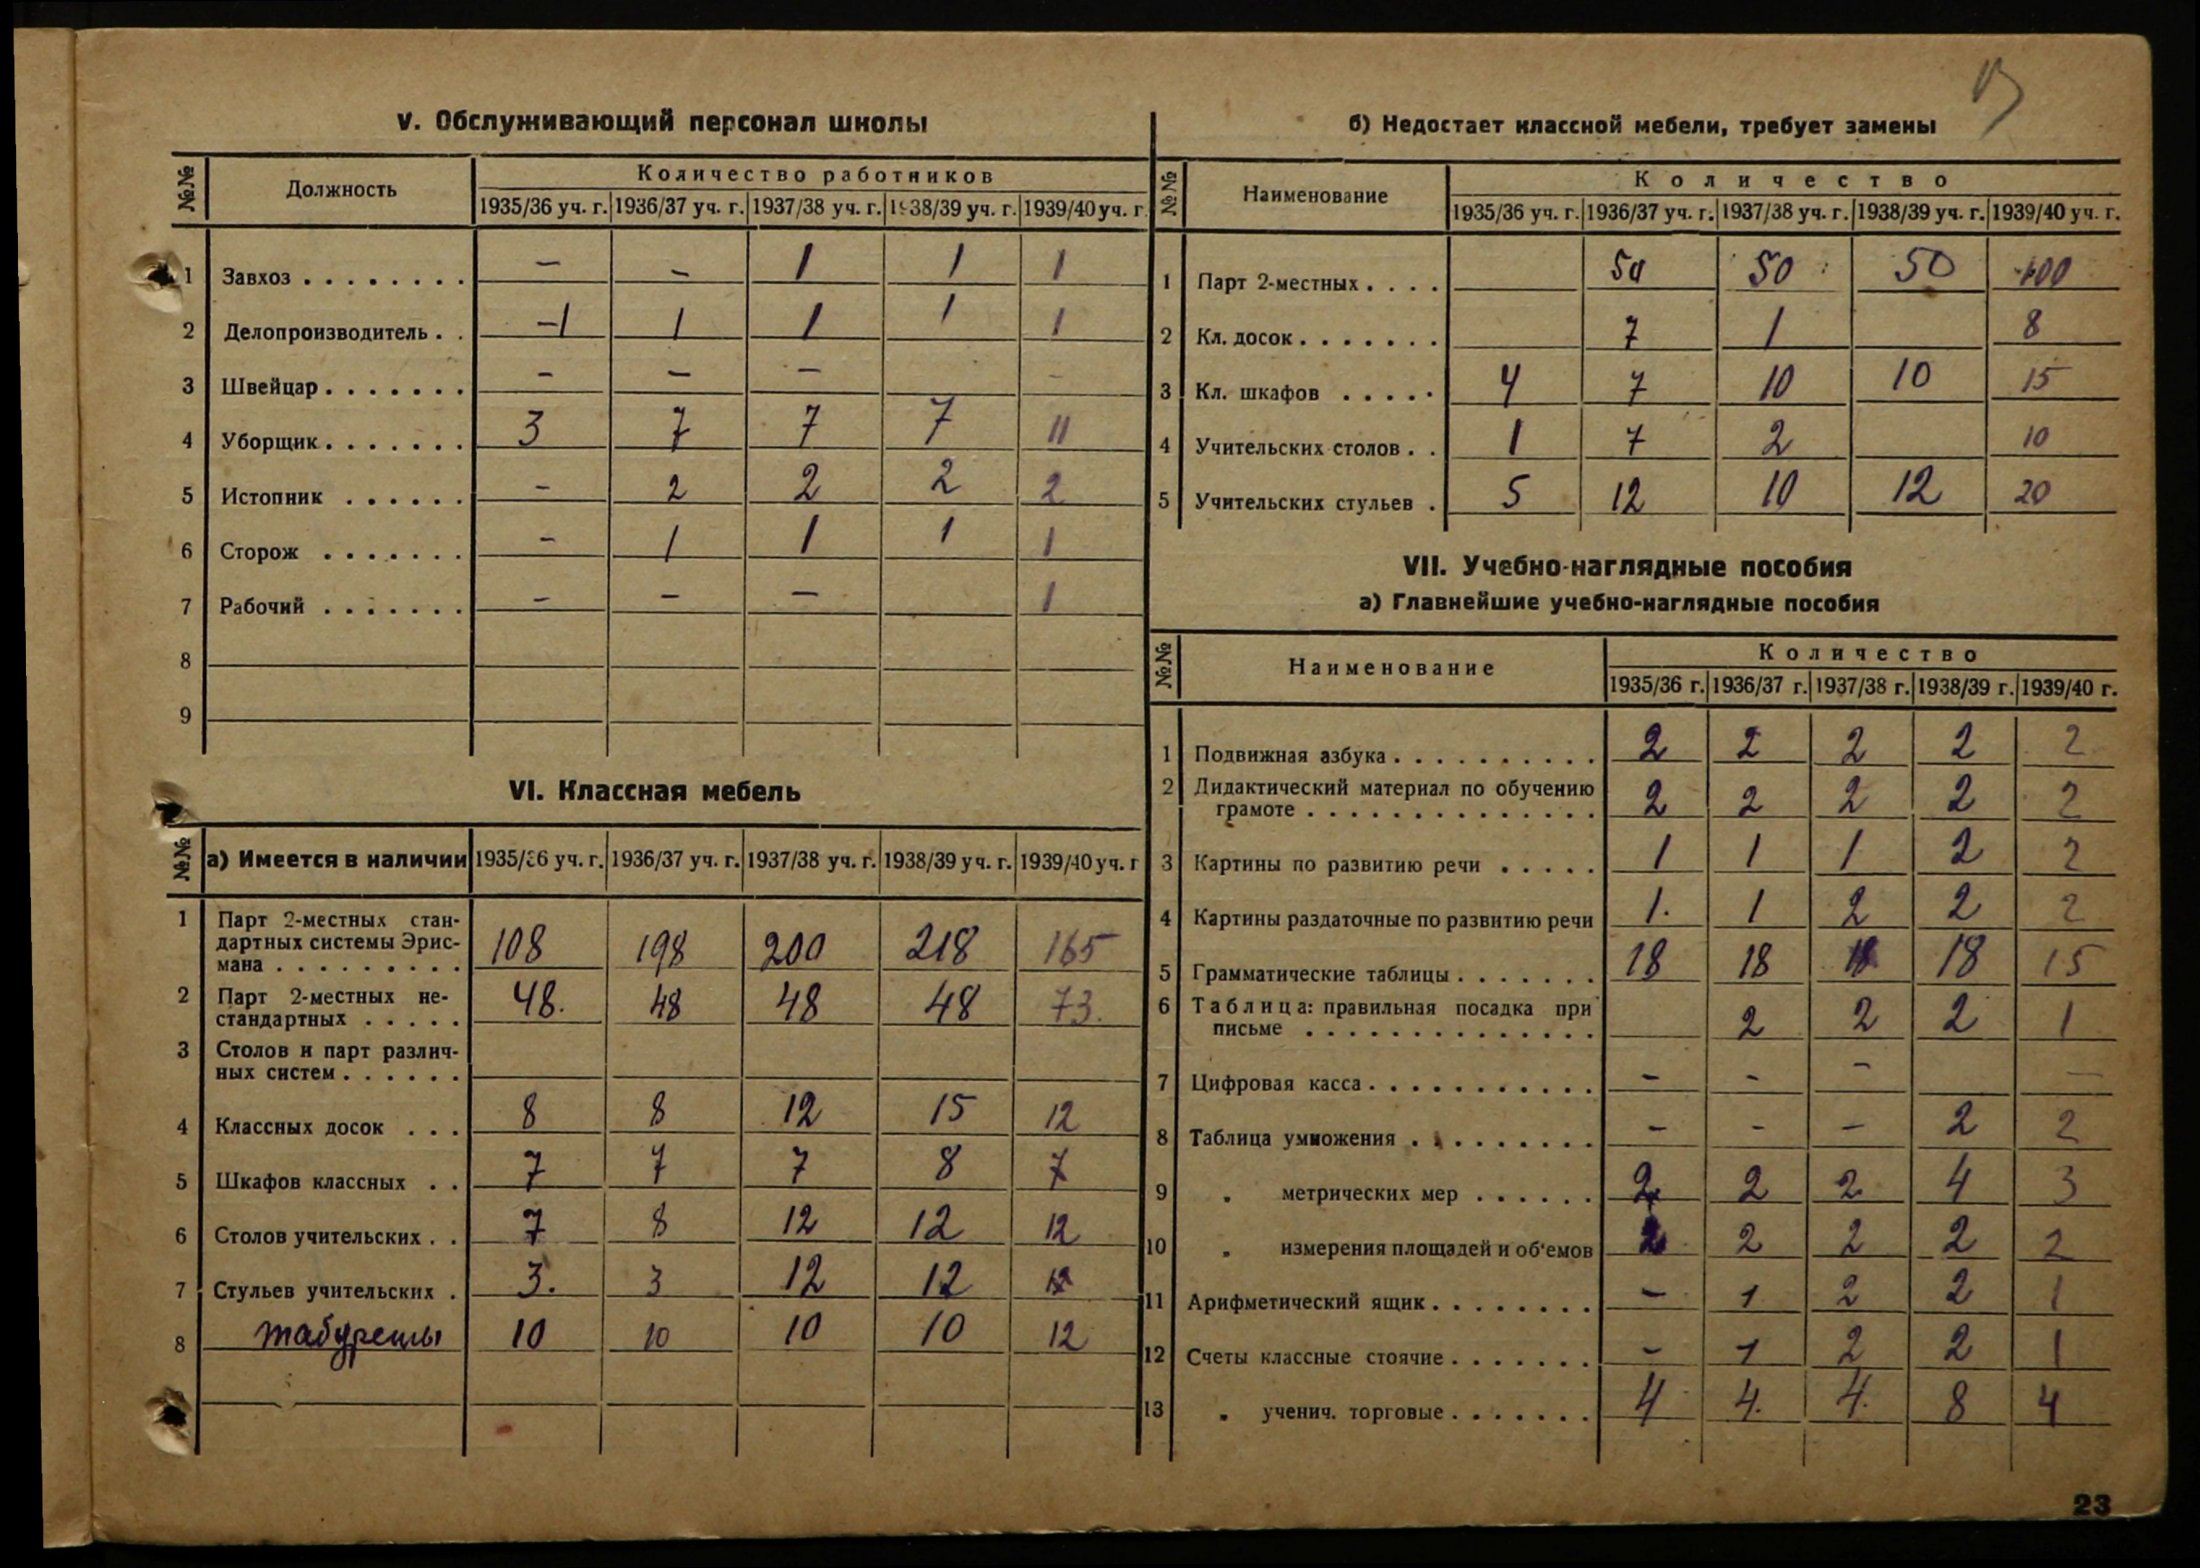 V. Обслуживающий персонал школы
№№ Должность Количество работников
1935/36 уч. г. 1936/37 уч. г. 1937/38 уч. г. 1938/39 уч. г. 1939/40 уч. г.
1 Завхоз . . . . . . . . – – 1 1 1
2 Делопроизводитель . . –1 1 1 1 1
3 Швейцар . . . . . . . – – – –
4 Уборщик . . . . . . . 3 7 7 7 11
5 Истопник . . . . . . – 2 2 2 2
6 Сторож . . . . . . . – 1 1 1 1
7 Рабочий . . . . . . . – – – 1
8
9
VI. Классная мебель
№№ а) Имеется в наличии 1935/36 уч. г. 1936/37 уч. г. 1937/38 уч. г. 1938/39 уч. г. 1939/40 уч. г
1 Парт 2-местных стан-
дартных системы Эрис-
мана . . . . . . . . . 108 198 200 218 165
2 Парт 2-местных не-
стандартных . . . . . 48. 48 48 48 73.
3 Столов и парт различ-
ных систем . . . . . .
4 Классных досок . . . 8 8 12 15 12
5 Шкафов классных . . 7 7 7 8 7
6 Столов учительских . . 7 8 12 12 12
7 Стульев учительских . 3. 3 12 12 12
8 табуреты 10 10 10 10 12
б) Недостает классной мебели, требует замены
№№ Наименование Количество
1935/36 уч. г. 1936/37 уч. г. 1937/38 уч. г. 1938/39 уч. г. 1939/40 уч. г.
1 Парт 2-местных . . . . 50 50 50 100
2 Кл. досок . . . . . . . 7 1 8
3 Кл. шкафов . . . . . 4 7 10 10 15
4 Учительских столов . . 1 7 2 10
5 Учительских стульев . 5 12 10 12 20
VII. Учебно-наглядные пособия
а) Главнейшие учебно-наглядные пособия
№№ Наименование Количество
1935/36 г. 1936/37 г. 1937/38 г. 1938/39 г. 1939/40 г.
1 Подвижная азбука . . . . . . . . . . 2 2 2 2 2
2 Дидактический материал по обучению
грамоте . . . . . . . . . . . . . . 2 2 2 2 2
3 Картины по развитию речи . . . . . 1 1 1 2 2
4 Картины раздаточные по развитию речи 1. 1 2 2 2
5 Грамматические таблицы . . . . . . . 18 18 18 18 15
6 Таблица: правильная посадка при
письме . . . . . . . . . . . . . . 2 2 2 1
7 Цифровая касса . . . . . . . . . . . – – – –
8 Таблица умножения . . . . . . . . . – – – 2 2
9 „ метрических мер . . . . . . 2 2 2 4 3
10 „ измерения площадей и об'емов 2 2 2 2 2
11 Арифметический ящик . . . . . . . . – 1 2 2 1
12 Счеты классные стоячие . . . . . . . – 1 2 2 1
13 „ ученич. торговые . . . . . . . 4 4. 4. 8 4
23